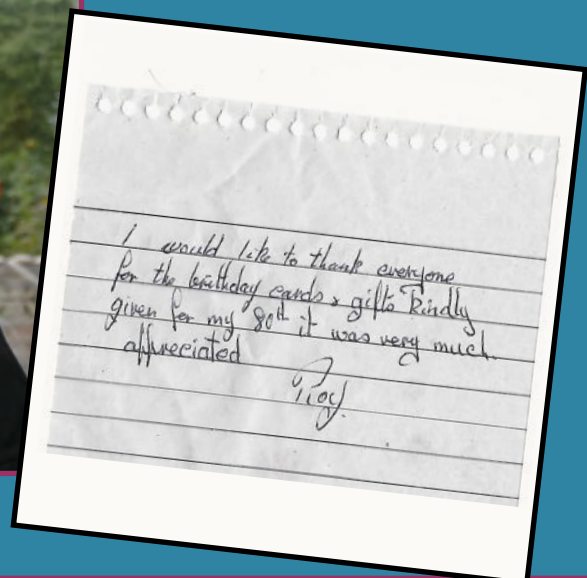 I would like to thank everyone
for the birthday cards & gifts kindly
given for my 80th it was very much
appreciated
Roy